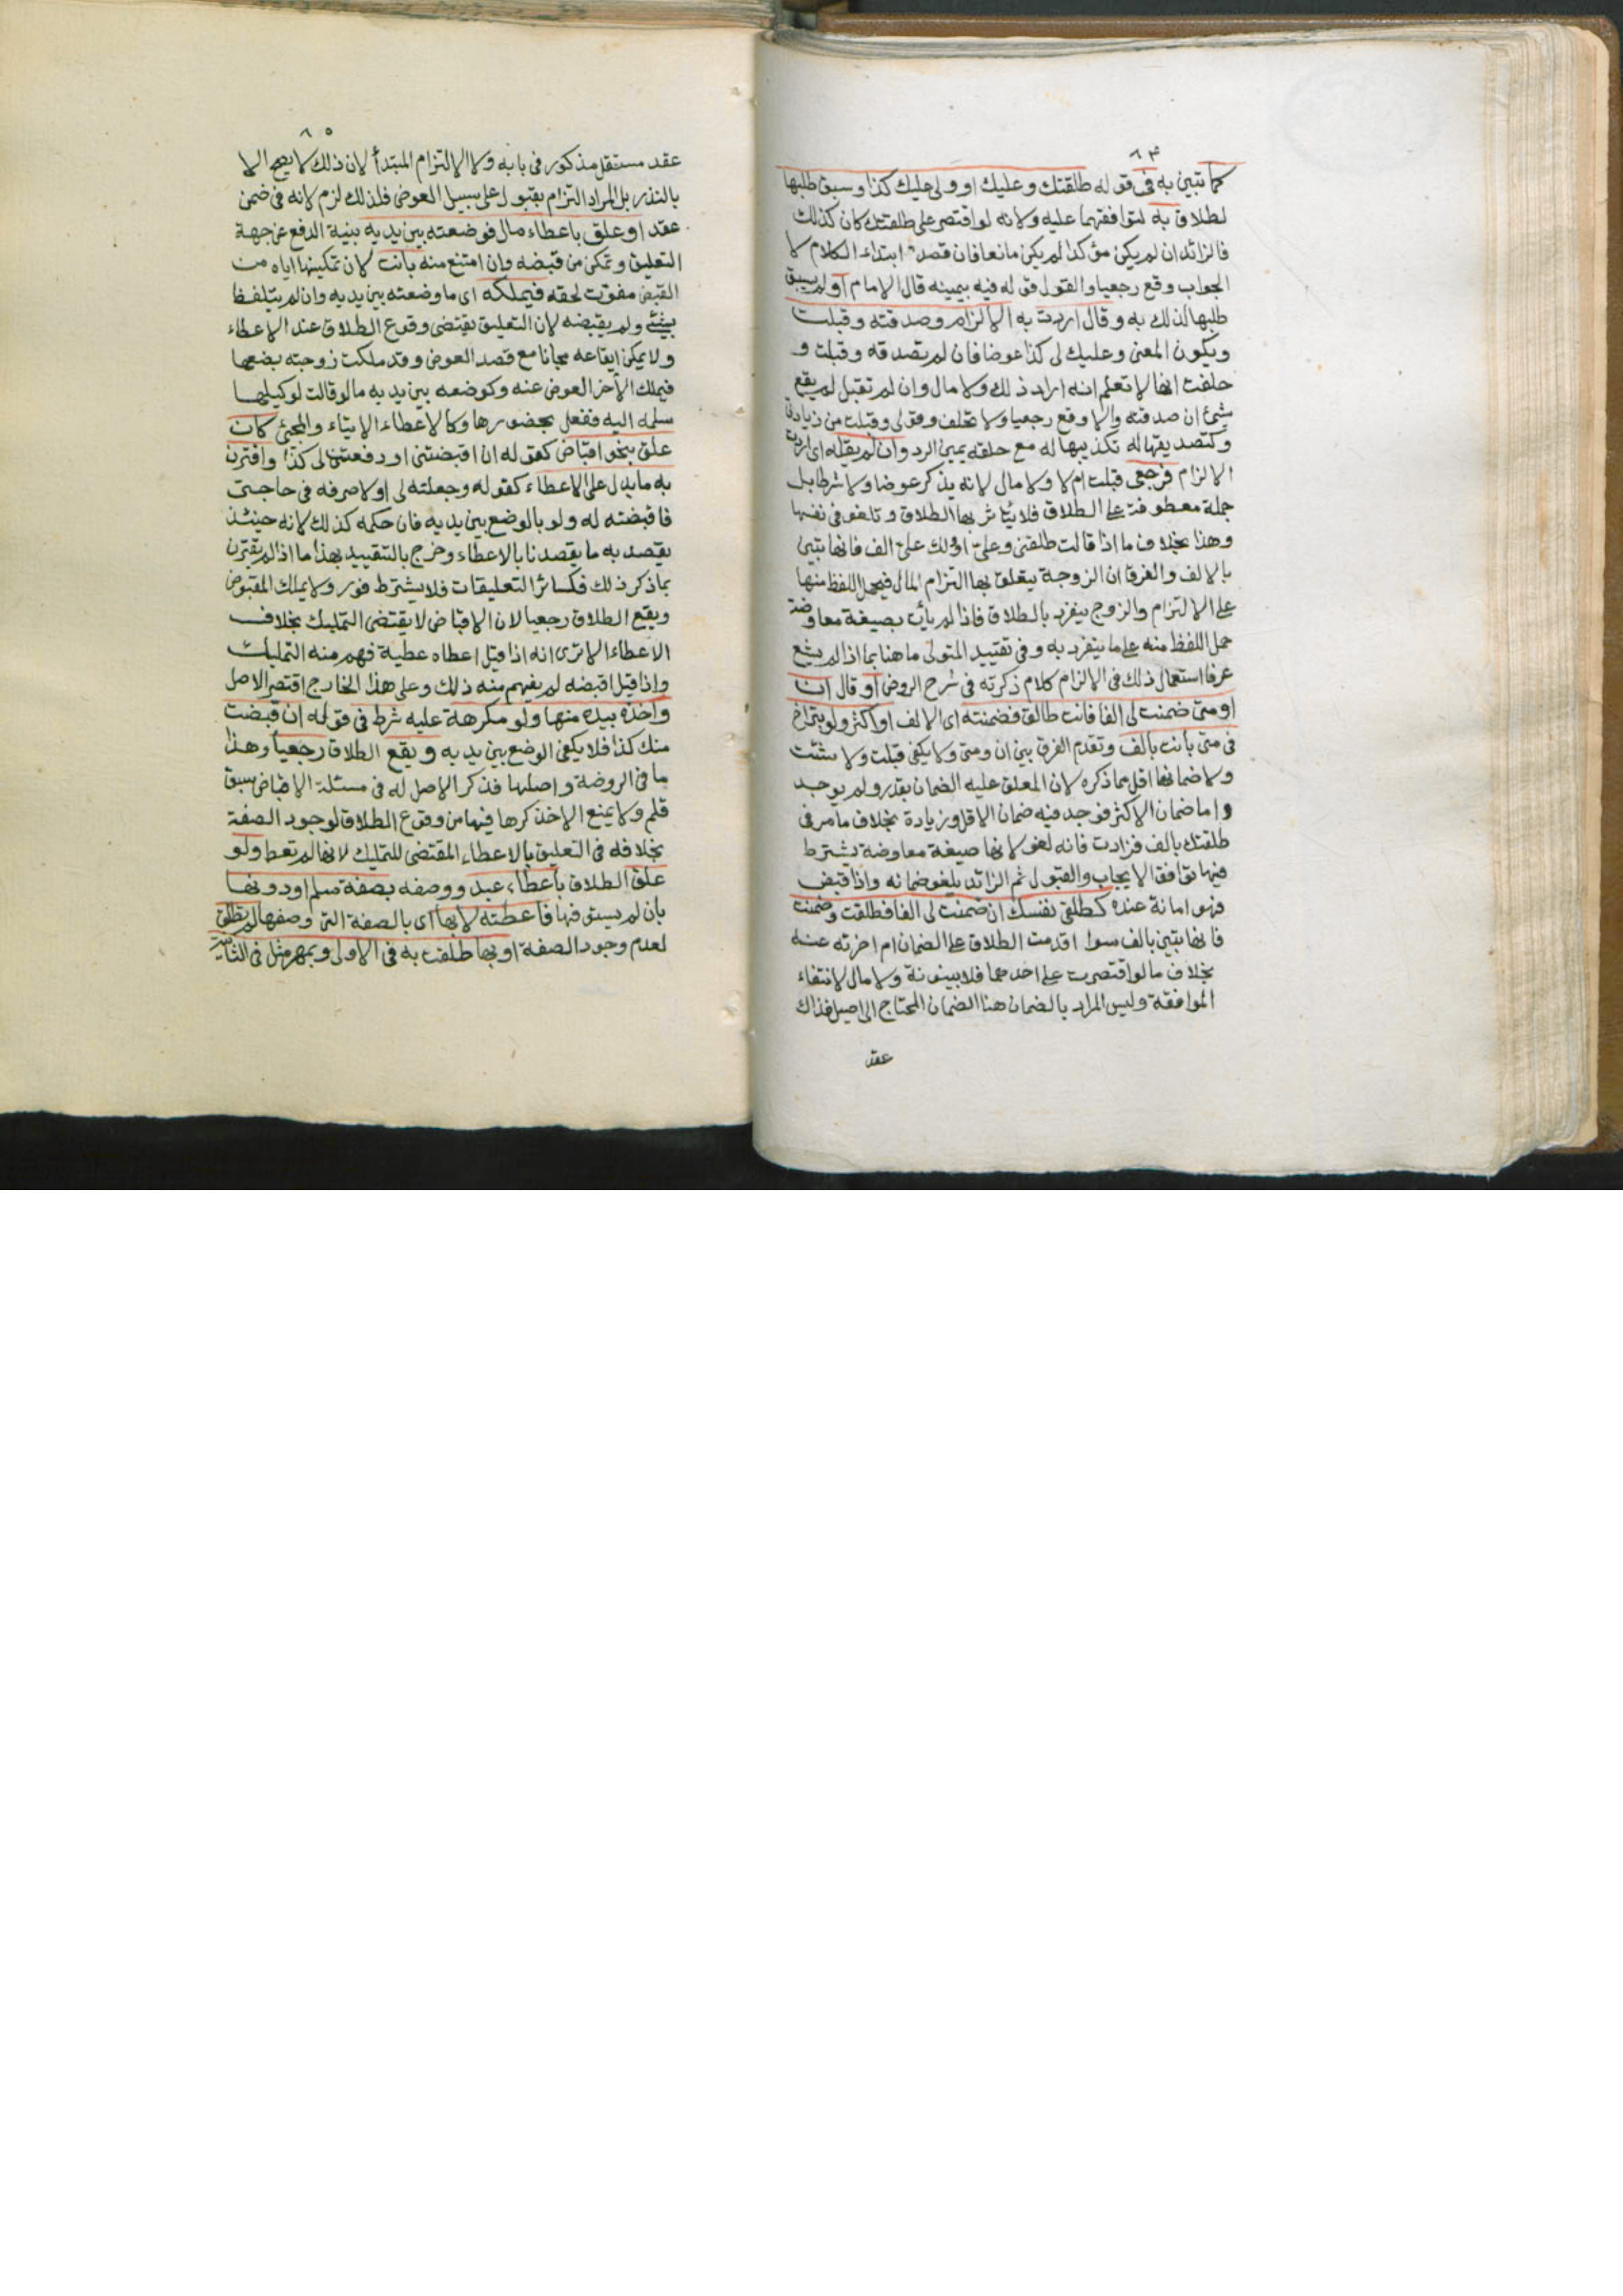 ٨٤
كما تبين به في قوله طلقتك وعليك او ولي عليك كذا وسبق طلبها
لطلاق به لتوافقهما عليه ولانه لو اقتصر على طلقتك كان كذلك
فالزائد ان لم يكن مؤكدا لم يكن مانعا فان قصد ابتداء الكلام لا
الجواب وقع رجعيا والقول قوله فيه بيمينه قال الامام او لم يسبق
طلبها لذلك به وقال اردت به الالزام وصدقته وقبلت
ويكون المعنى وعليك لي كذا عوضا فان لم تصدقه وقبلت و
حلفت انها لا تعلم انه اراد ذلك ولا مال وان لم تقبل لم يقع
شيئ ان صدقته والا وقع رجعيا ولا تحلف وقولي وقبلت من زيادتي
وكتصديقها له تكذيبها له مع حلفه يمين الرد وان لم يقله اي اردت
الالزام فرجعي قبلت ام لا ولا مال لانه يذكر عوضا ولا شرطا بل
جملة معطوفة على الطلاق فلا يتاثر بها الطلاق وتلغو في نفسها
وهذا بخلاف ما اذا قالت طلقني وعلي او لك علي الف فانها تبين
بالالف والفرق ان الزوجة يتعلق بها التزام المال فيحمل اللفظ منها
على الالتزام والزوج ينفرد بالطلاق فاذا لم يأت بصيغة معاوضة
حمل اللفظ منه على ما ينفرد به وفي تقييد المتولي ما هنا بما اذا لم يشع
عرفا استعمال ذلك في الالزام كلام ذكرته في شرح الروض او قال ان
او متى ضمنت لي الفا فانت طالق فضمنته اي الالف او اكثر ولو بتراخ
في متى بانت بالف وتقدم الفرق بين ان ومتى ولا يكفي قبلت ولا شئت
ولا ضمانها اقل مما ذكره لان المعلق عليه الضمان بقدر ولم يوجد
واما ضمان الاكثر فوجد فيه ضمان الاقل وزيادة بخلاف ما مر في
طلقتك بالف فزادت فانه لغو لانها صيغة معاوضة تشترط
فيها توافق الايجاب والقبول ثم الزائد يلغو ضمانه واذا قبض
فهو امانة عنده كطلقي نفسك ان ضمنت لي الفا فطلقت وضمنت
فانها تبين بالف سوا اقدمت الطلاق على الضمان ام اخرته عنه
بخلاف ما لو اقتصرت على احدهما فلا بينونة ولا مال لانتفاء
الموافقة وليس المراد بالضمان هنا الضمان المحتاج الى اصيل فذاك
عقد
٨٥
عقد مستقل مذكور في بابه ولا الالتزام المبتدأ لان ذلك لا يصح الا
بالنذر بل المراد التزام بقبول على سبيل العوض فلذلك لزم لانه في ضمن
عقد او علق باعطاء مال فوضعته بين يديه بنية الدفع عن جهة
التعليق وتمكن من قبضه وان امتنع منه بانت لان تمكينها اياه من
القبض مفوت لحقه فيملكه اي ما وضعته بين يديه وان لم يتلفظ
بشئ ولم يقبضه لان التعليق يقتضي وقوع الطلاق عند الاعطاء
ولا يمكن ايقاعه مجانا مع قصد العوض وقد ملكت زوجته بضعها
فيملك الآخر العوض عنه وكوضعه بين يديه ما لو قالت لوكيلها
سلمه اليه ففعل بحضورها وكالاعطاء الايتاء والمجئ كان
علق بنحو اقباض كقوله ان اقبضتني او دفعت لي كذا واقترن
به ما يدل على الاعطاء كقوله وجعلته لي او لاصرفه في حاجتي
فاقبضته له ولو بالوضع بين يديه فان حكمه كذلك لانه حينئذ
يقصد به ما يقصد نا بالاعطاء وخرج بالتقييد بهذا ما اذا لم يقترن
بما ذكر ذلك فكسائر التعليقات فلا يشترط فور ولا يملك المقبوض
ويقع الطلاق رجعيا لان الاقباض لا يقتضي التمليك بخلاف
الاعطاء الا ترى انه اذا قيل اعطاه عطية فهم منه التمليك
واذا قيل اقبضه لم يفهم منه ذلك وعلى هذا الخارج اقتصر الاصل
واخذه بيده منها ولو مكرهة عليه شرط في قوله ان قبضت
منك كذا فلا يكفي الوضع بين يديه ويقع الطلاق رجعيا وهذا
ما في الروضة واصلها فذكر الاصل له في مسئلة الاقباض سبق
قلم ولا يمنع الاخذ كرها فيها من وقوع الطلاق لوجود الصفة
بخلافه في التعليق بالاعطاء المقتضي للتمليك لانها لم تعط ولو
علق الطلاق باعطاء عبد ووصفه بصفة سلم او دونها
بان لم يستوفها فاعطته لا بها اي بالصفة التي وصفها لم تطلق
لعدم وجود الصفة او بها طلقت به في الاولى وبمهر مثل في الثانية